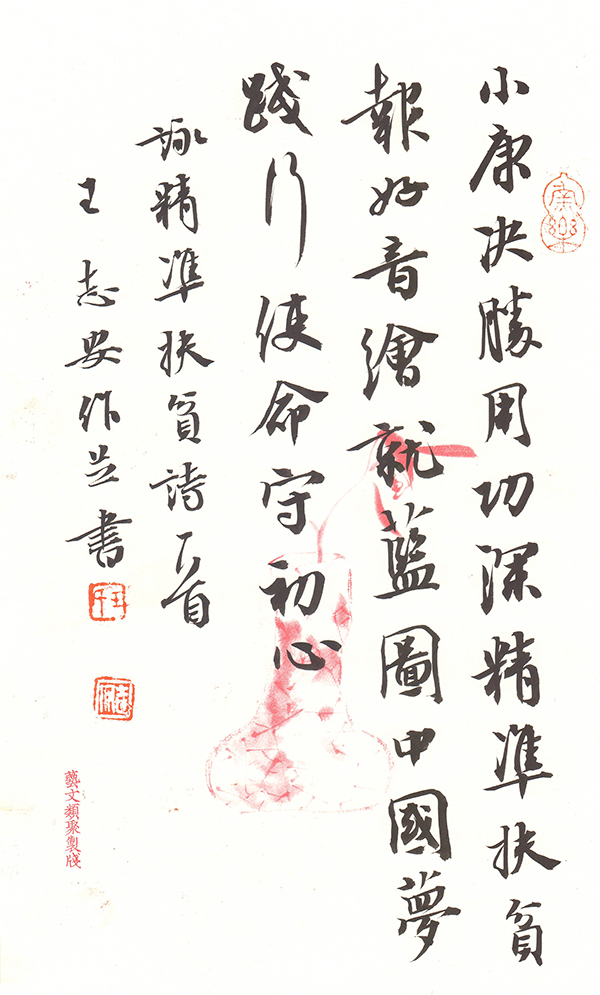 小康决勝用功深精準扶貧
報好音繪就藍圖中國夢
踐行使命守初心
詠精準扶貧詩一首
王志安作并書
藝文類聚製牋